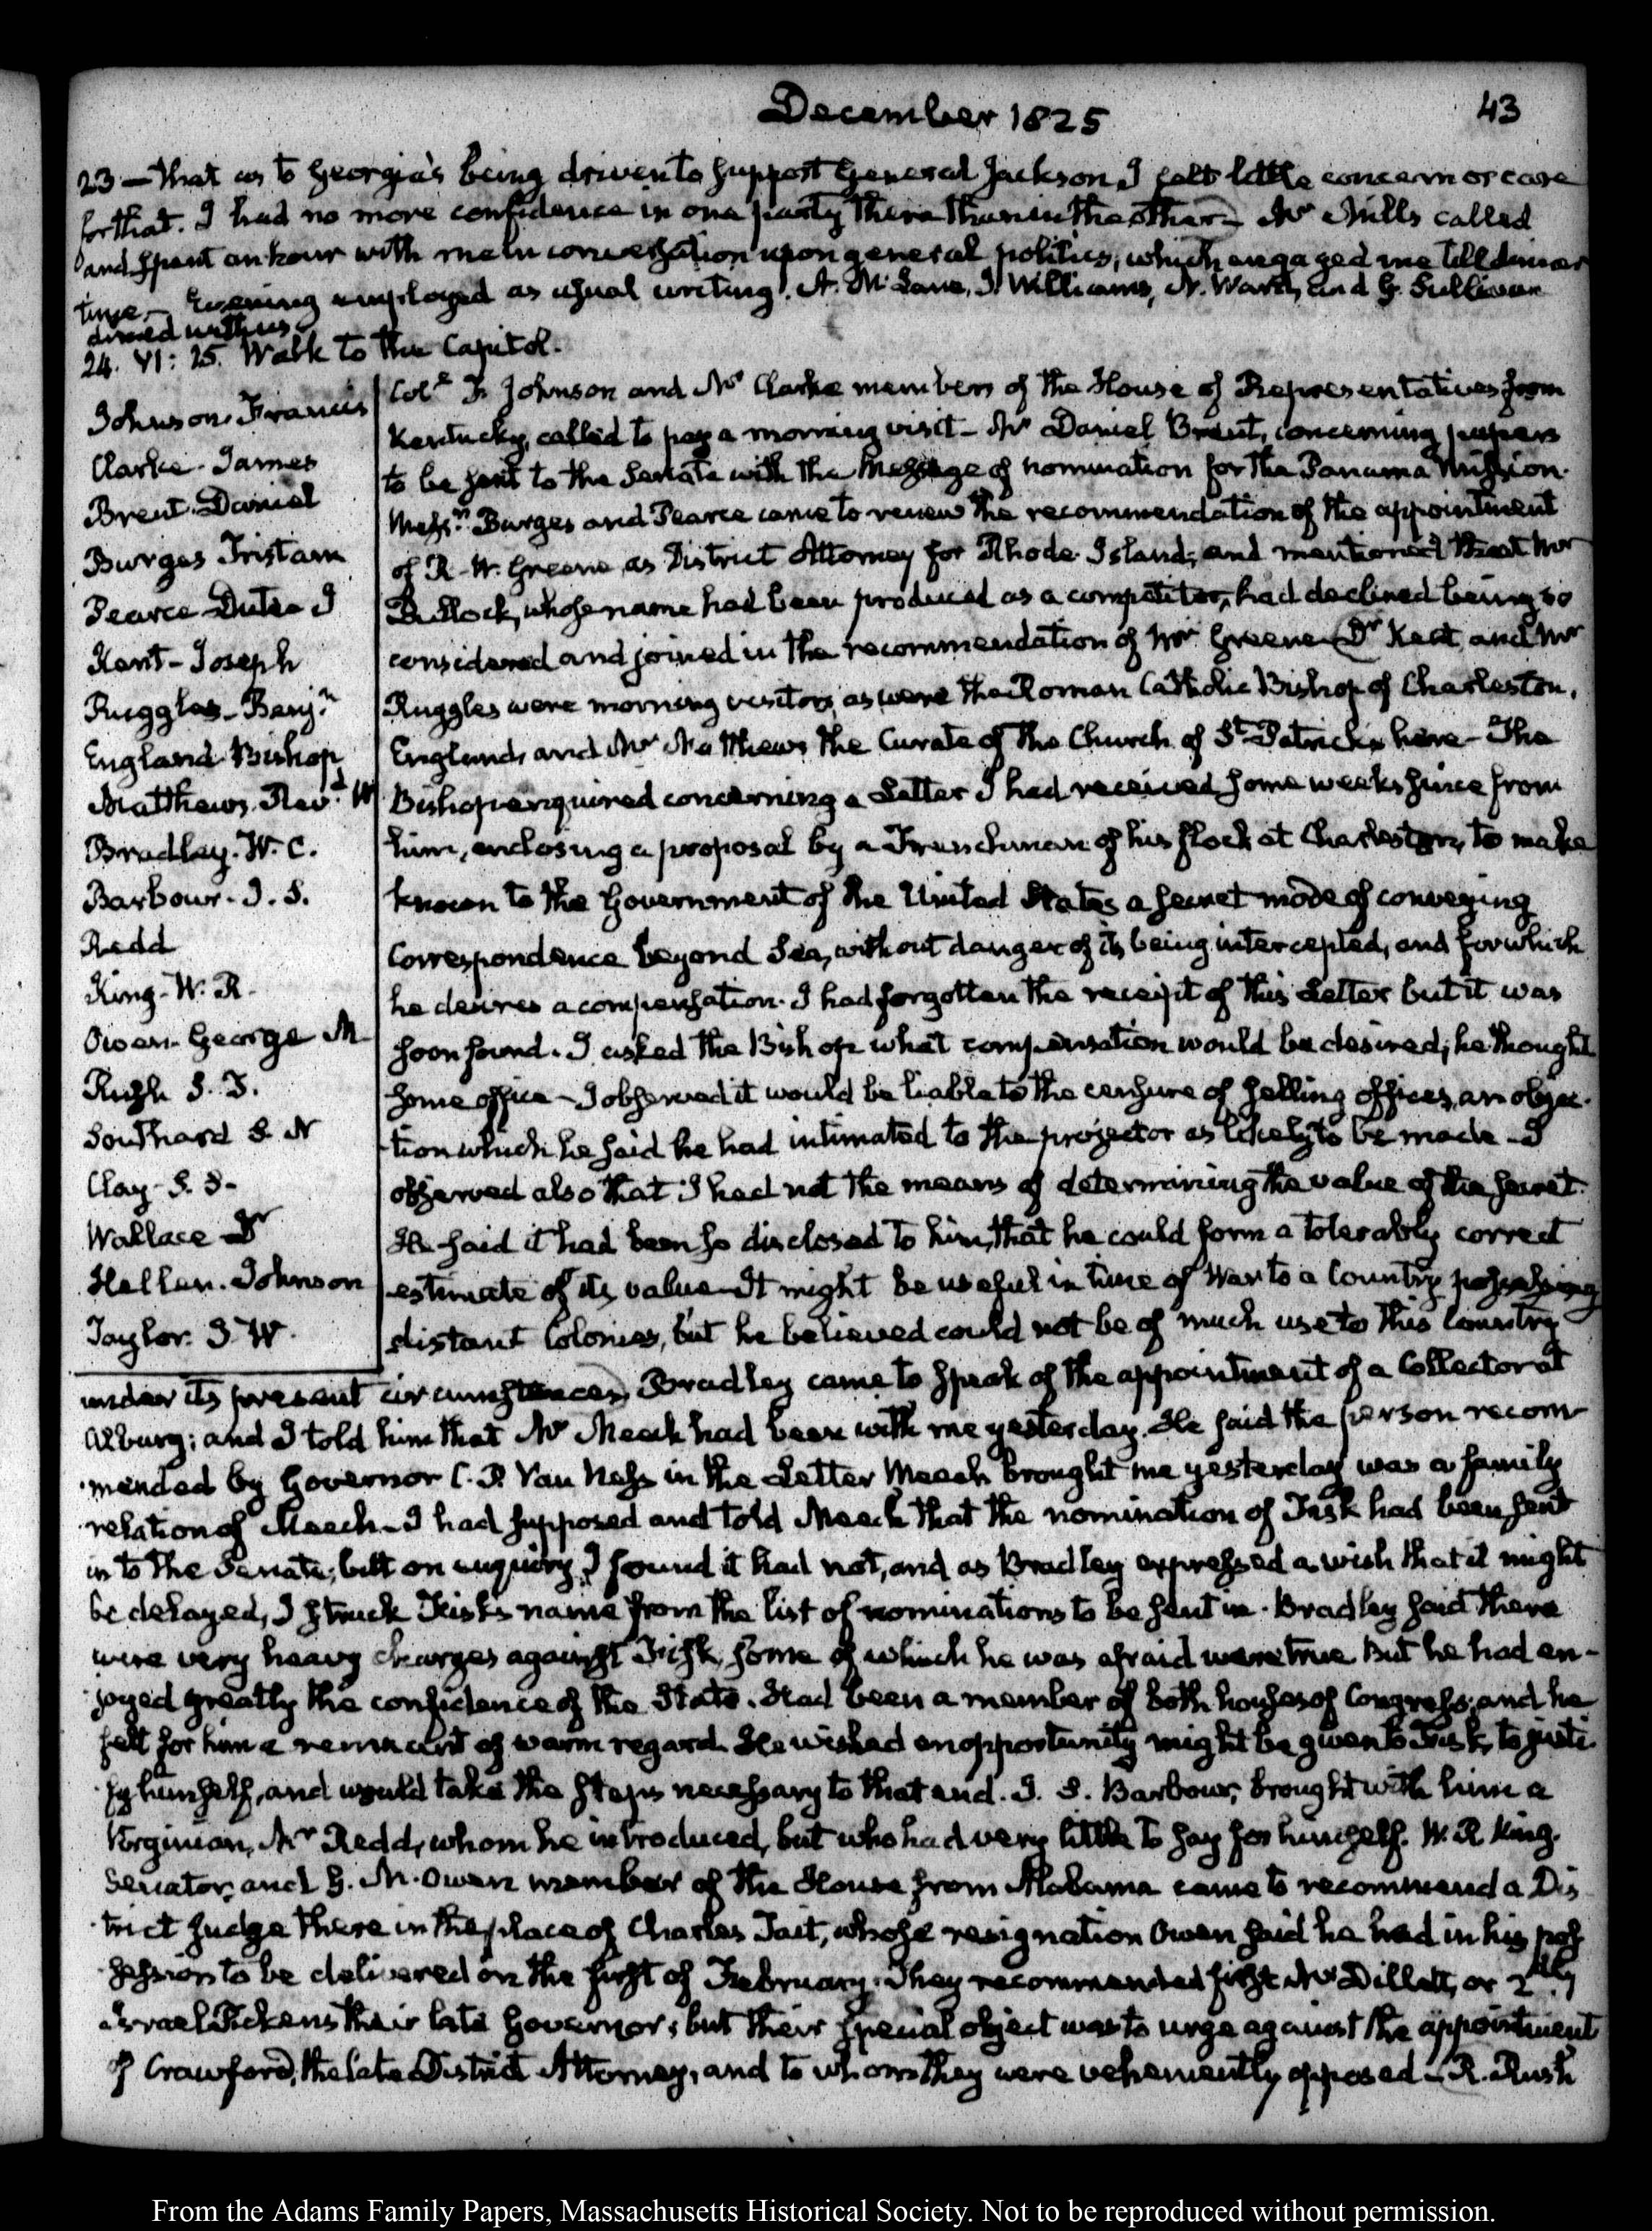 December 1825
43
23 — that as to Georgia's being driven to support General Jackson, I felt little concern or care
for that. I had no more confidence in one party there than in the other — Mr Mills called
and spent an hour with me in conversation upon general politics, which engaged me till dinner
time — Evening employed as usual writing. A. McLane, J Williams, A. Ward, and G. Sullivan
dined with us.
24. VI: 25. Walk to the Capitol.
Johnson. Francis
Clarke. James
Brent. Daniel
Burges Tristam
Pearce Dutee J
Kent — Joseph
Ruggles — Benjn
England Bishop
Matthews. Revd W
Bradley. W. C.
Barbour. J. S.
Redd
King. W. R.
Owen. George M
Rush
Southard S. N
Clay
Wallace Dr
Hellen. Johnson
Taylor. J W.
Coll F. Johnson and Mr Clarke members of the House of Representatives from
Kentucky, called to pay a morning visit — Mr Daniel Brent, concerning papers
to be sent to the Senate with the Message of nomination for the Panama Mission.
Messrs Burges and Pearce came to renew the recommendation of the appointment
of R. W. Greene as District Attorney for Rhode Island; and mentioned that Mr
Bullock, whose name had been produced as a competitor, had declined being so
considered and joined in the recommendation of Mr Greene — Dr Kent, and Mr
Ruggles were morning visitors, as were the Roman Catholic Bishop of Charleston,
England, and Mr Matthews the Curate of the Church of St Patrick's here — The
Bishop enquired concerning a Letter I had received some weeks since from
him, enclosing a proposal by a Frenchman of his flock at Charleston, to make
known to the Government of the United States a secret mode of conveying
Correspondence beyond Sea, without danger of its being intercepted, and for which
he desires a compensation. I had forgotten the receipt of this Letter but it was
soon found. I asked the Bishop what compensation would be desired; he thought
some office — I observed it would be liable to the censure of selling offices, an objec-
tion which he said he had intimated to the projector as likely to be made — I
observed also that I had not the means of determining the value of the secret.
He said it had been so disclosed to him, that he could form a tolerably correct
estimate of its value — It might be useful in time of War to a Country possessing
distant Colonies, but he believed could not be of much use to this Country
under its present circumstances. Bradley came to speak of the appointment of a Collector at
Alburg; and I told him that Mr Meech had been with me yesterday. He said the person recom-
mended by Governor C. P. Van Ness in the Letter Meech brought me yesterday was a family
relation of Meech — I had supposed and told Meech that the nomination of Fisk had been sent
in to the Senate; but on enquiry I found it had not, and as Bradley expressed a wish that it might
be delayed, I struck Fisk's name from the list of nominations to be sent in. Bradley said there
were very heavy charges against Fisk, some of which he was afraid were true. But he had en-
joyed greatly the confidence of the State. Had been a member of both houses of Congress; and he
felt for him a remnant of warm regard. He wished an opportunity might be given to Fisk, to justi-
fy himself, and would take the steps necessary to that end. J. S. Barbour, brought with him a
Virginian, Mr Redd, whom he introduced, but who had very little to say for himself. W. R King
Senator, and G. M. Owen member of the House from Alabama came to recommend a Dis-
trict Judge there in the place of Charles Tait, whose resignation Owen said he had in his pos-
session to be delivered on the first of February. They recommended first Mr Dillett, or 2dly
Israel Pickens their late Governor; but their special object was to urge against the appointment
of Crawford, the late District Attorney, and to whom they were vehemently opposed — R. Rush
From the Adams Family Papers, Massachusetts Historical Society. Not to be reproduced without permission.